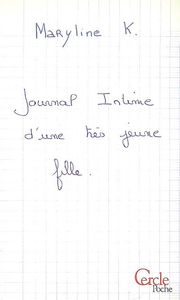 Maryline K.
Journal Intime
d'une très jeune
fille.
Cercle
Poche